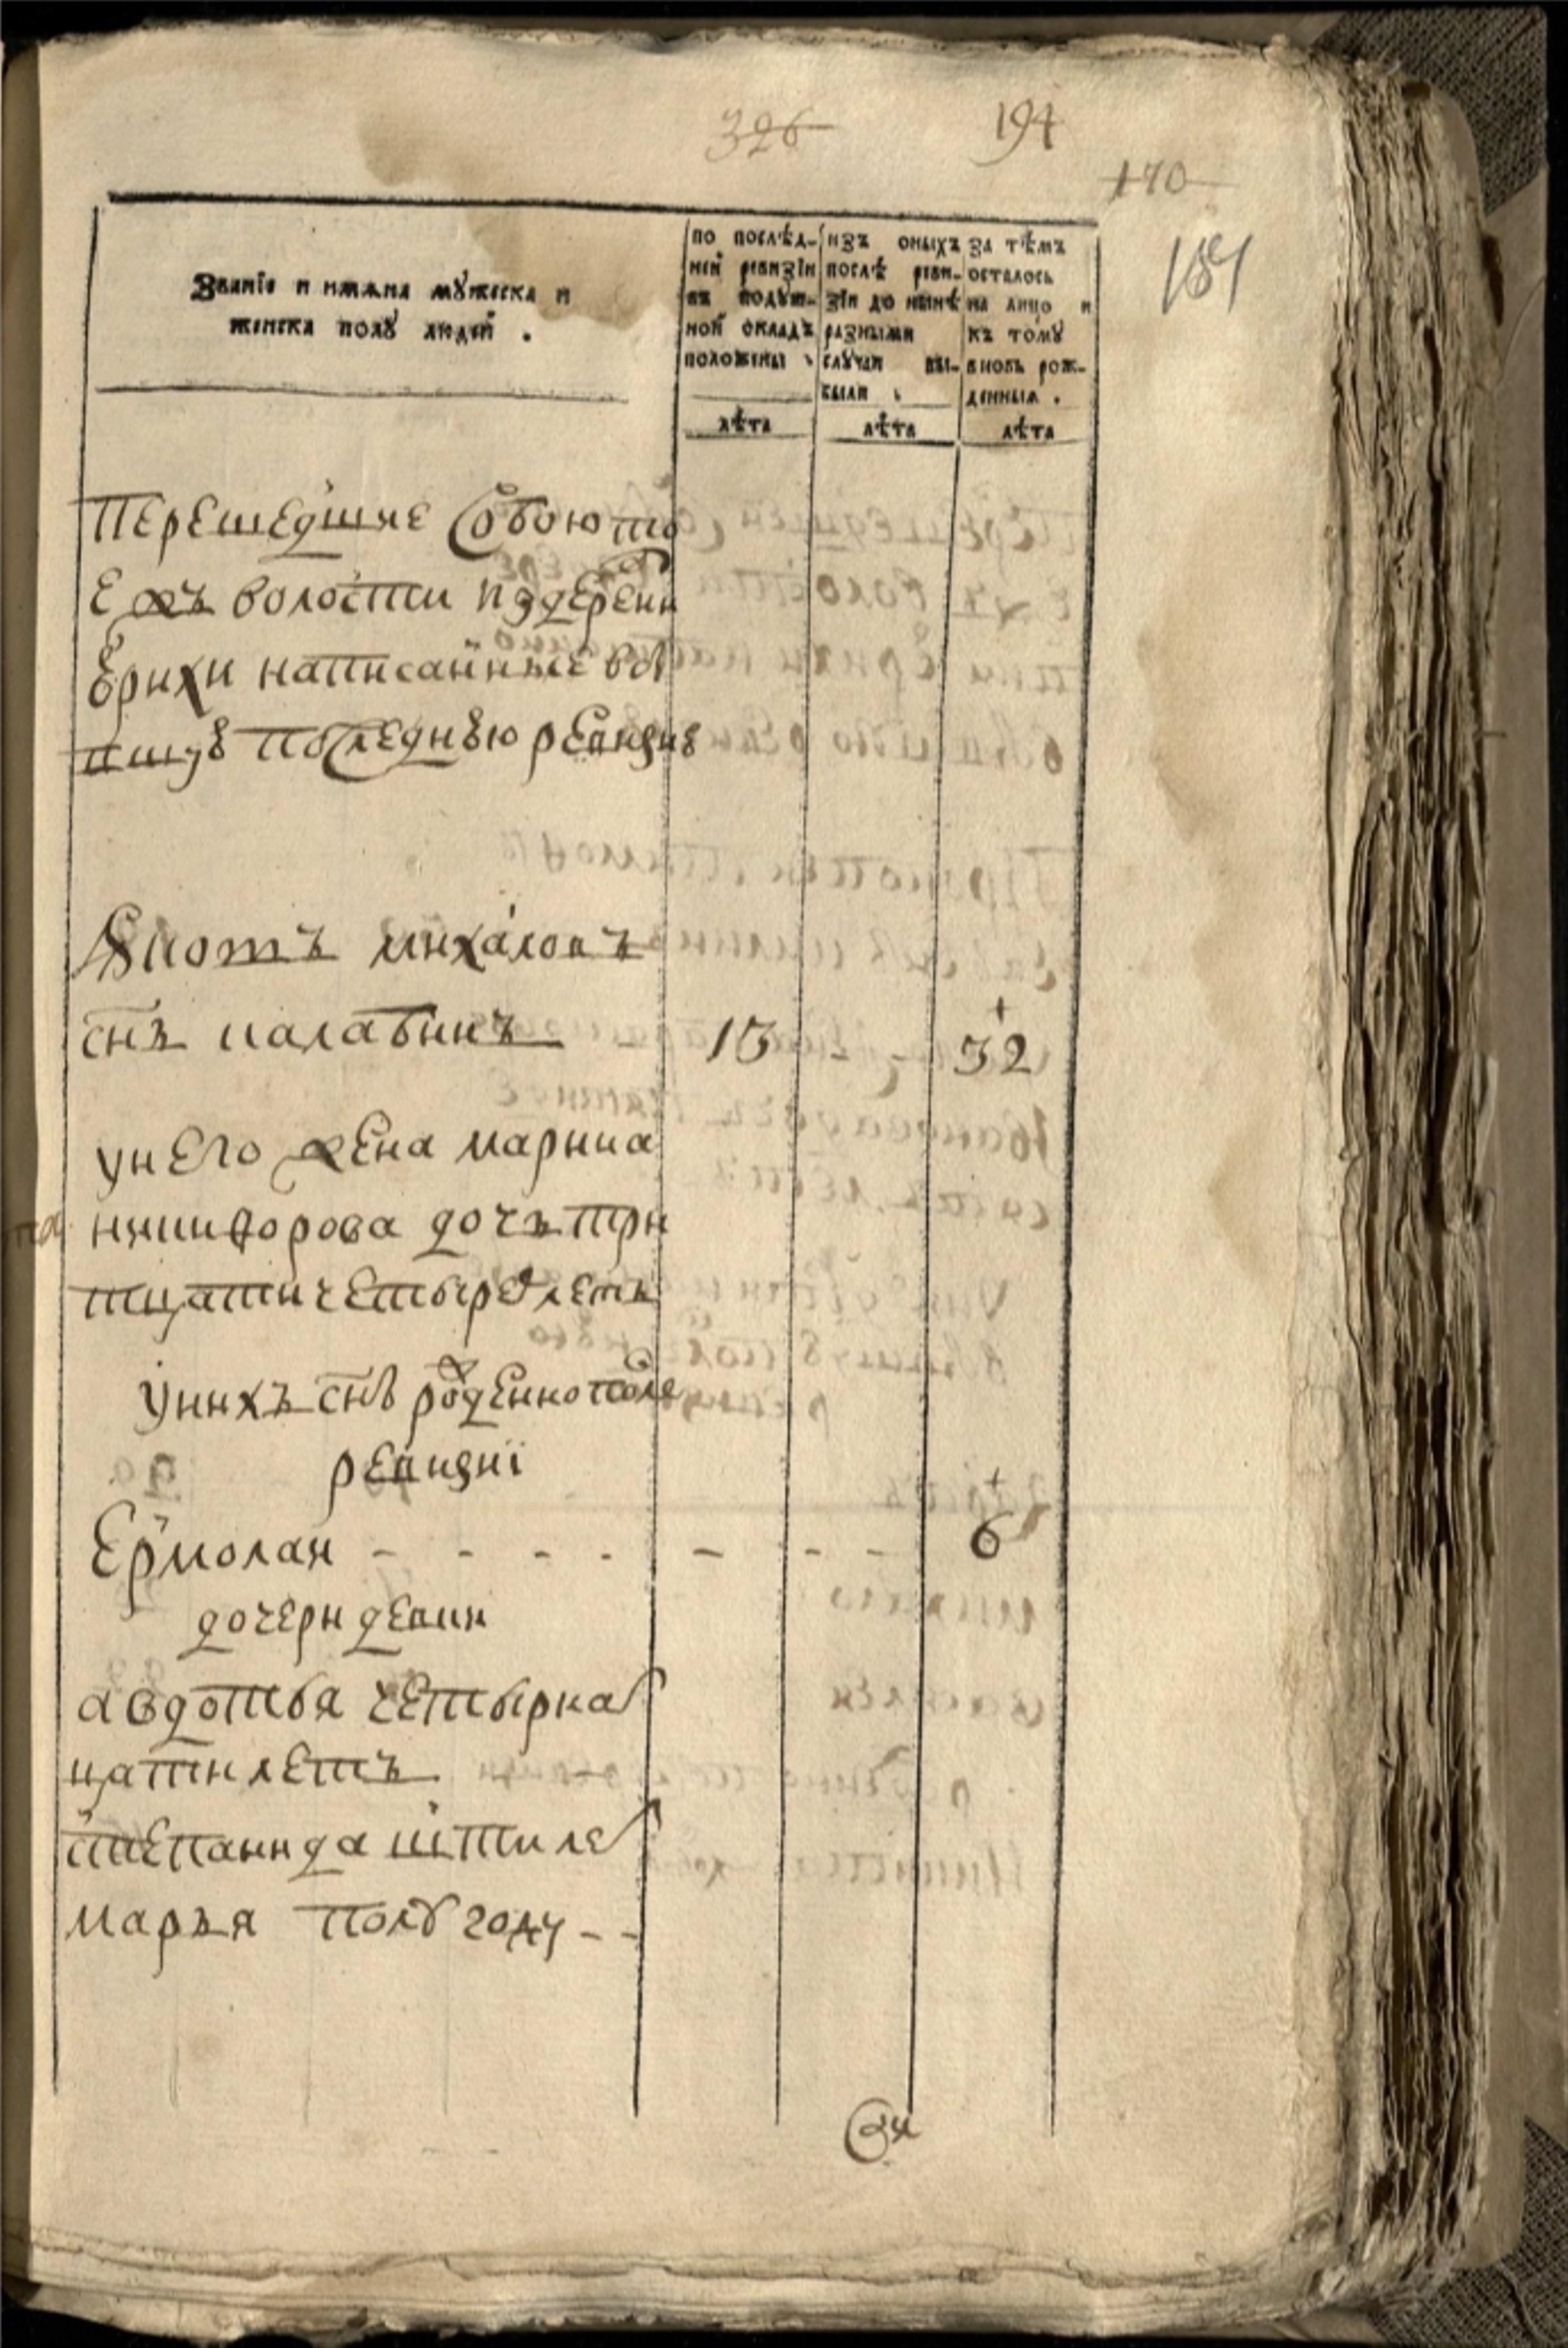 326 194
170
187
Званїе и имяна мȣжеска и
женска полȣ людей .
по послѣд-
ней ревизїи
въ подȣш-
ной окладъ
положены
лѣта
изъ оныхъ
послѣ реви-
зїи до нынѣ
разными
слȣчаи вы-
были
лѣта
за тѣмъ
осталось
на лицо и
къ томȣ
вновь рож-
денныя .
лѣта
перешедшие Собою то
е жъ волости издеревни
Ерихи написанные
последнюю ревизию
михаловъ
снъ калабинъ 13 32
унего жена марина
никифорова дочь три
тцати четыре летъ
унихъ снъ рожденнопосле
ревизиї
Ермолаи - - - - - - - 6
дочери девки
авдотья четырна
цати летъ
степанида шти ле
марья полъ году - -